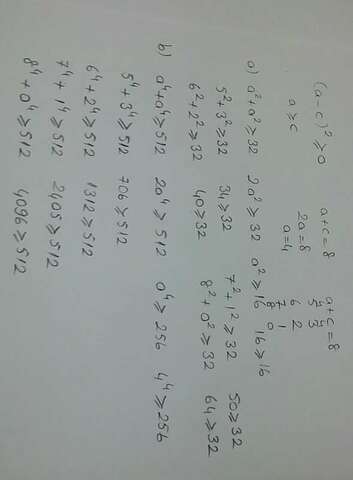 (a-c)² ⩾ 0 a+c=8 a+c=8
a ⩾ c 2a=8 5 3
a=4 6 2
7 1
8 0
a) a²+a² ⩾ 32 2a² ⩾ 32 a² ⩾ 16 16 ⩾ 16
5²+3² ⩾ 32 34 ⩾ 32 7²+1² ⩾ 32 50 ⩾ 32
6²+2² ⩾ 32 40 ⩾ 32 8²+0² ⩾ 32 64 ⩾ 32
b) a⁴+a⁴ ⩾ 512 2a⁴ ⩾ 512 a⁴ ⩾ 256 4⁴ ⩾ 256
5⁴+3⁴ ⩾ 512 706 ⩾ 512
6⁴+2⁴ ⩾ 512 1312 ⩾ 512
7⁴+1⁴ ⩾ 512 2405 ⩾ 512
8⁴+0⁴ ⩾ 512 4096 ⩾ 512